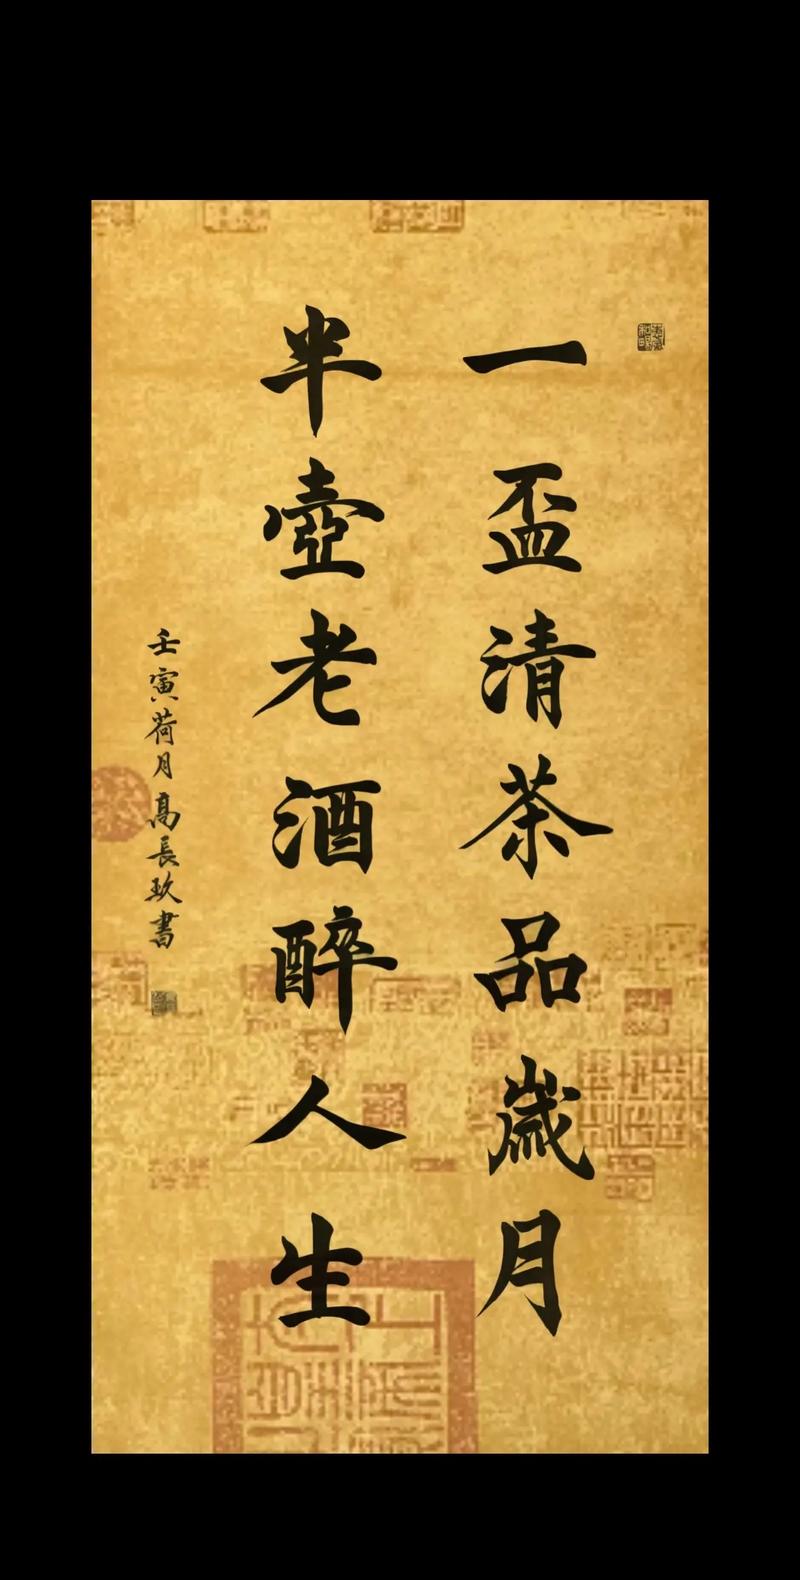 一盃清茶品歲月
半壺老酒醉人生
壬寅荷月高長玖書